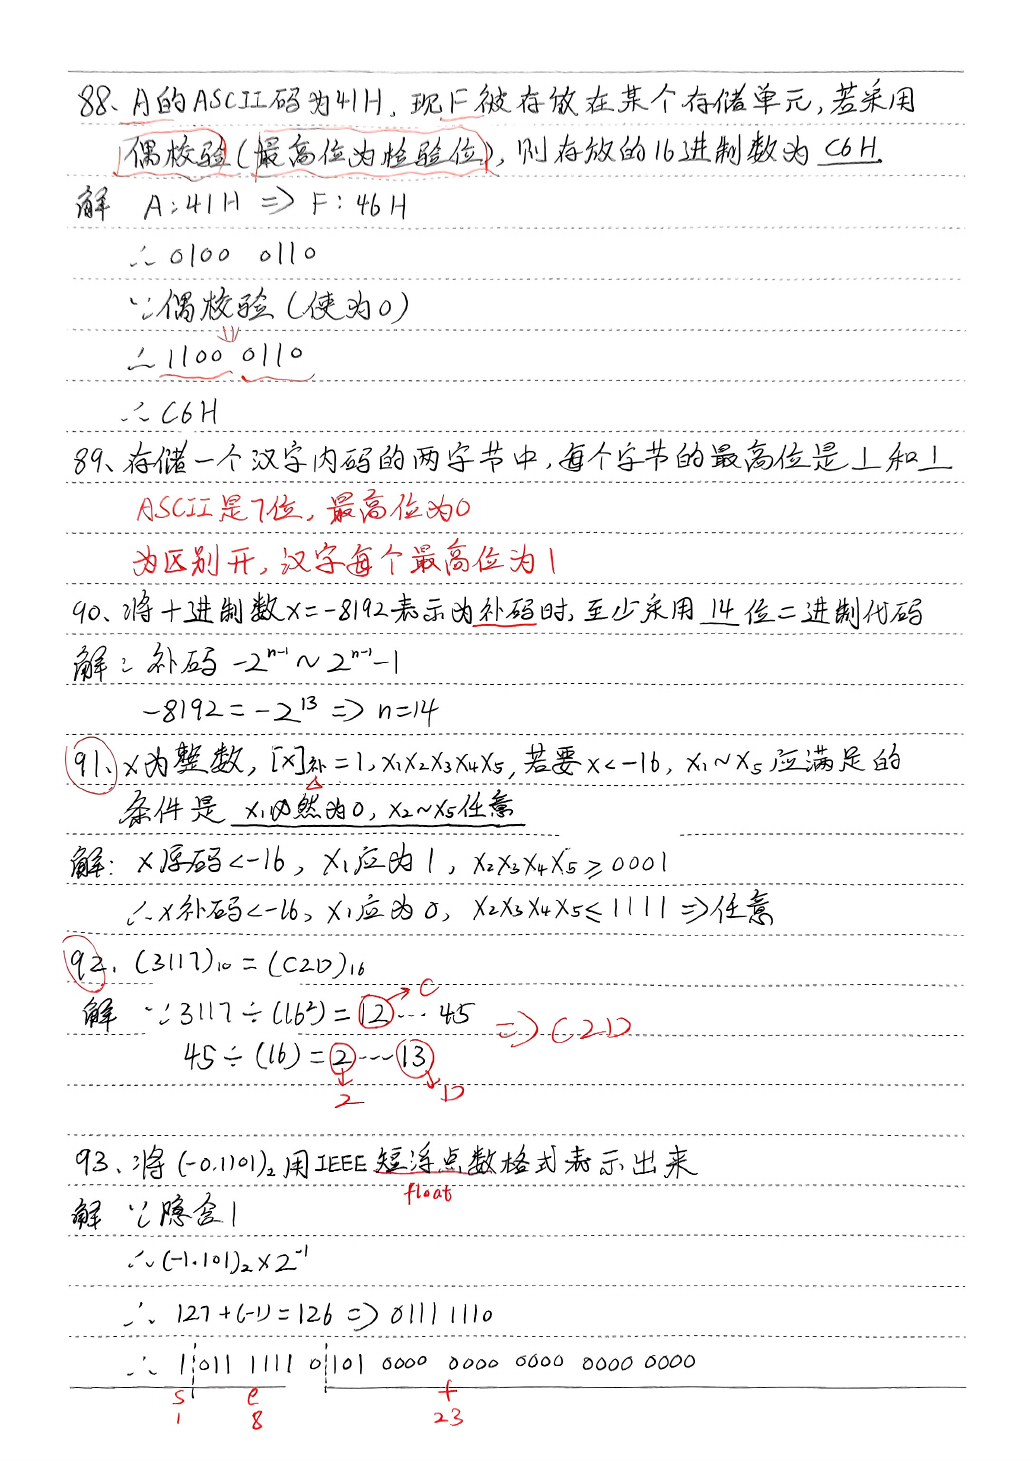 88、A的ASCII码为41H,现F被存放在某个存储单元,若采用
偶校验(最高位为检验位),则存放的16进制数为 C6H.
解 A:41H => F:46H
∴ 0100 0110
∵偶校验(使为0)
∴ 1100 0110
∴ C6H
89、存储一个汉字内码的两字节中,每个字节的最高位是 1 和 1
ASCII是7位,最高位为0
为区别开,汉字每个最高位为1
90、将十进制数x=-8192表示为补码时,至少采用 14 位二进制代码
解: 补码 -2ⁿ⁻¹ ~ 2ⁿ⁻¹-1
-8192=-2¹³ => n=14
91、x为整数,[x]补=1,x₁x₂x₃x₄x₅,若要x<-16, x₁~x₅应满足的
条件是 x₁必然为0, x₂~x₅任意
解: x原码<-16, x₁应为1, x₂x₃x₄x₅≥0001
∴x补码<-16, x₁应为0, x₂x₃x₄x₅≤1111 =>任意
92. (3117)₁₀=(C2D)₁₆
C
解 ∵3117÷(16²)=12…45 => C2D
45÷(16)=2…13
2 D
93、将(-0.1101)₂用IEEE短浮点数格式表示出来
float
解 ∵隐含1
∴(-1.101)₂×2⁻¹
∴ 127+(-1)=126 => 0111 1110
∴ 1 011 1111 0 101 0000 0000 0000 0000 0000
s e f
1 8 23